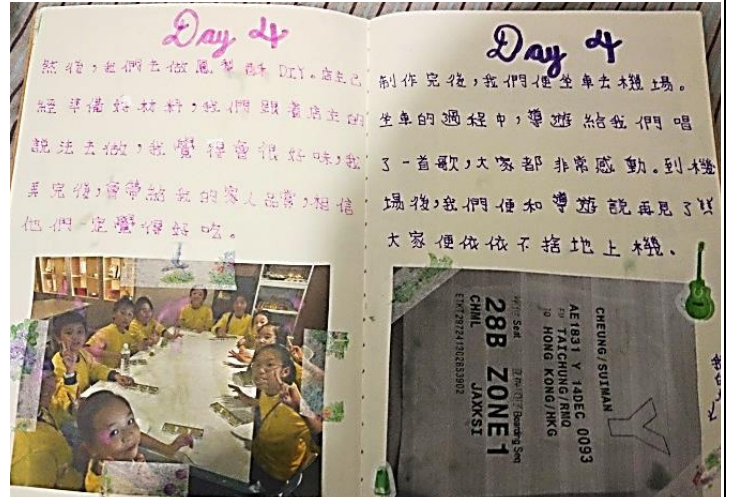 Day 4
然後，我們去做鳳梨酥DIY。店主已
經準備好材料，我們跟着店主的
說法去做，我覺得會很好味，我
弄完後，會帶給我的家人品嘗，相信
他們一定覺得好吃。
Day 4
制作完後，我們便坐車去機場。
坐車的過程中，導遊給我們唱
了一首歌，大家都非常感動。到機
場後，我們便和導遊說再見了
大家便依依不捨地上機。
CHEUNG/SUIMAN
AE1831 Y 14DEC 0093
TAICHUNG/RMQ
TO HONG KONG/HKG
Y
Seat
Boarding Seq
28B ZONE 1
CHML JAXKSI